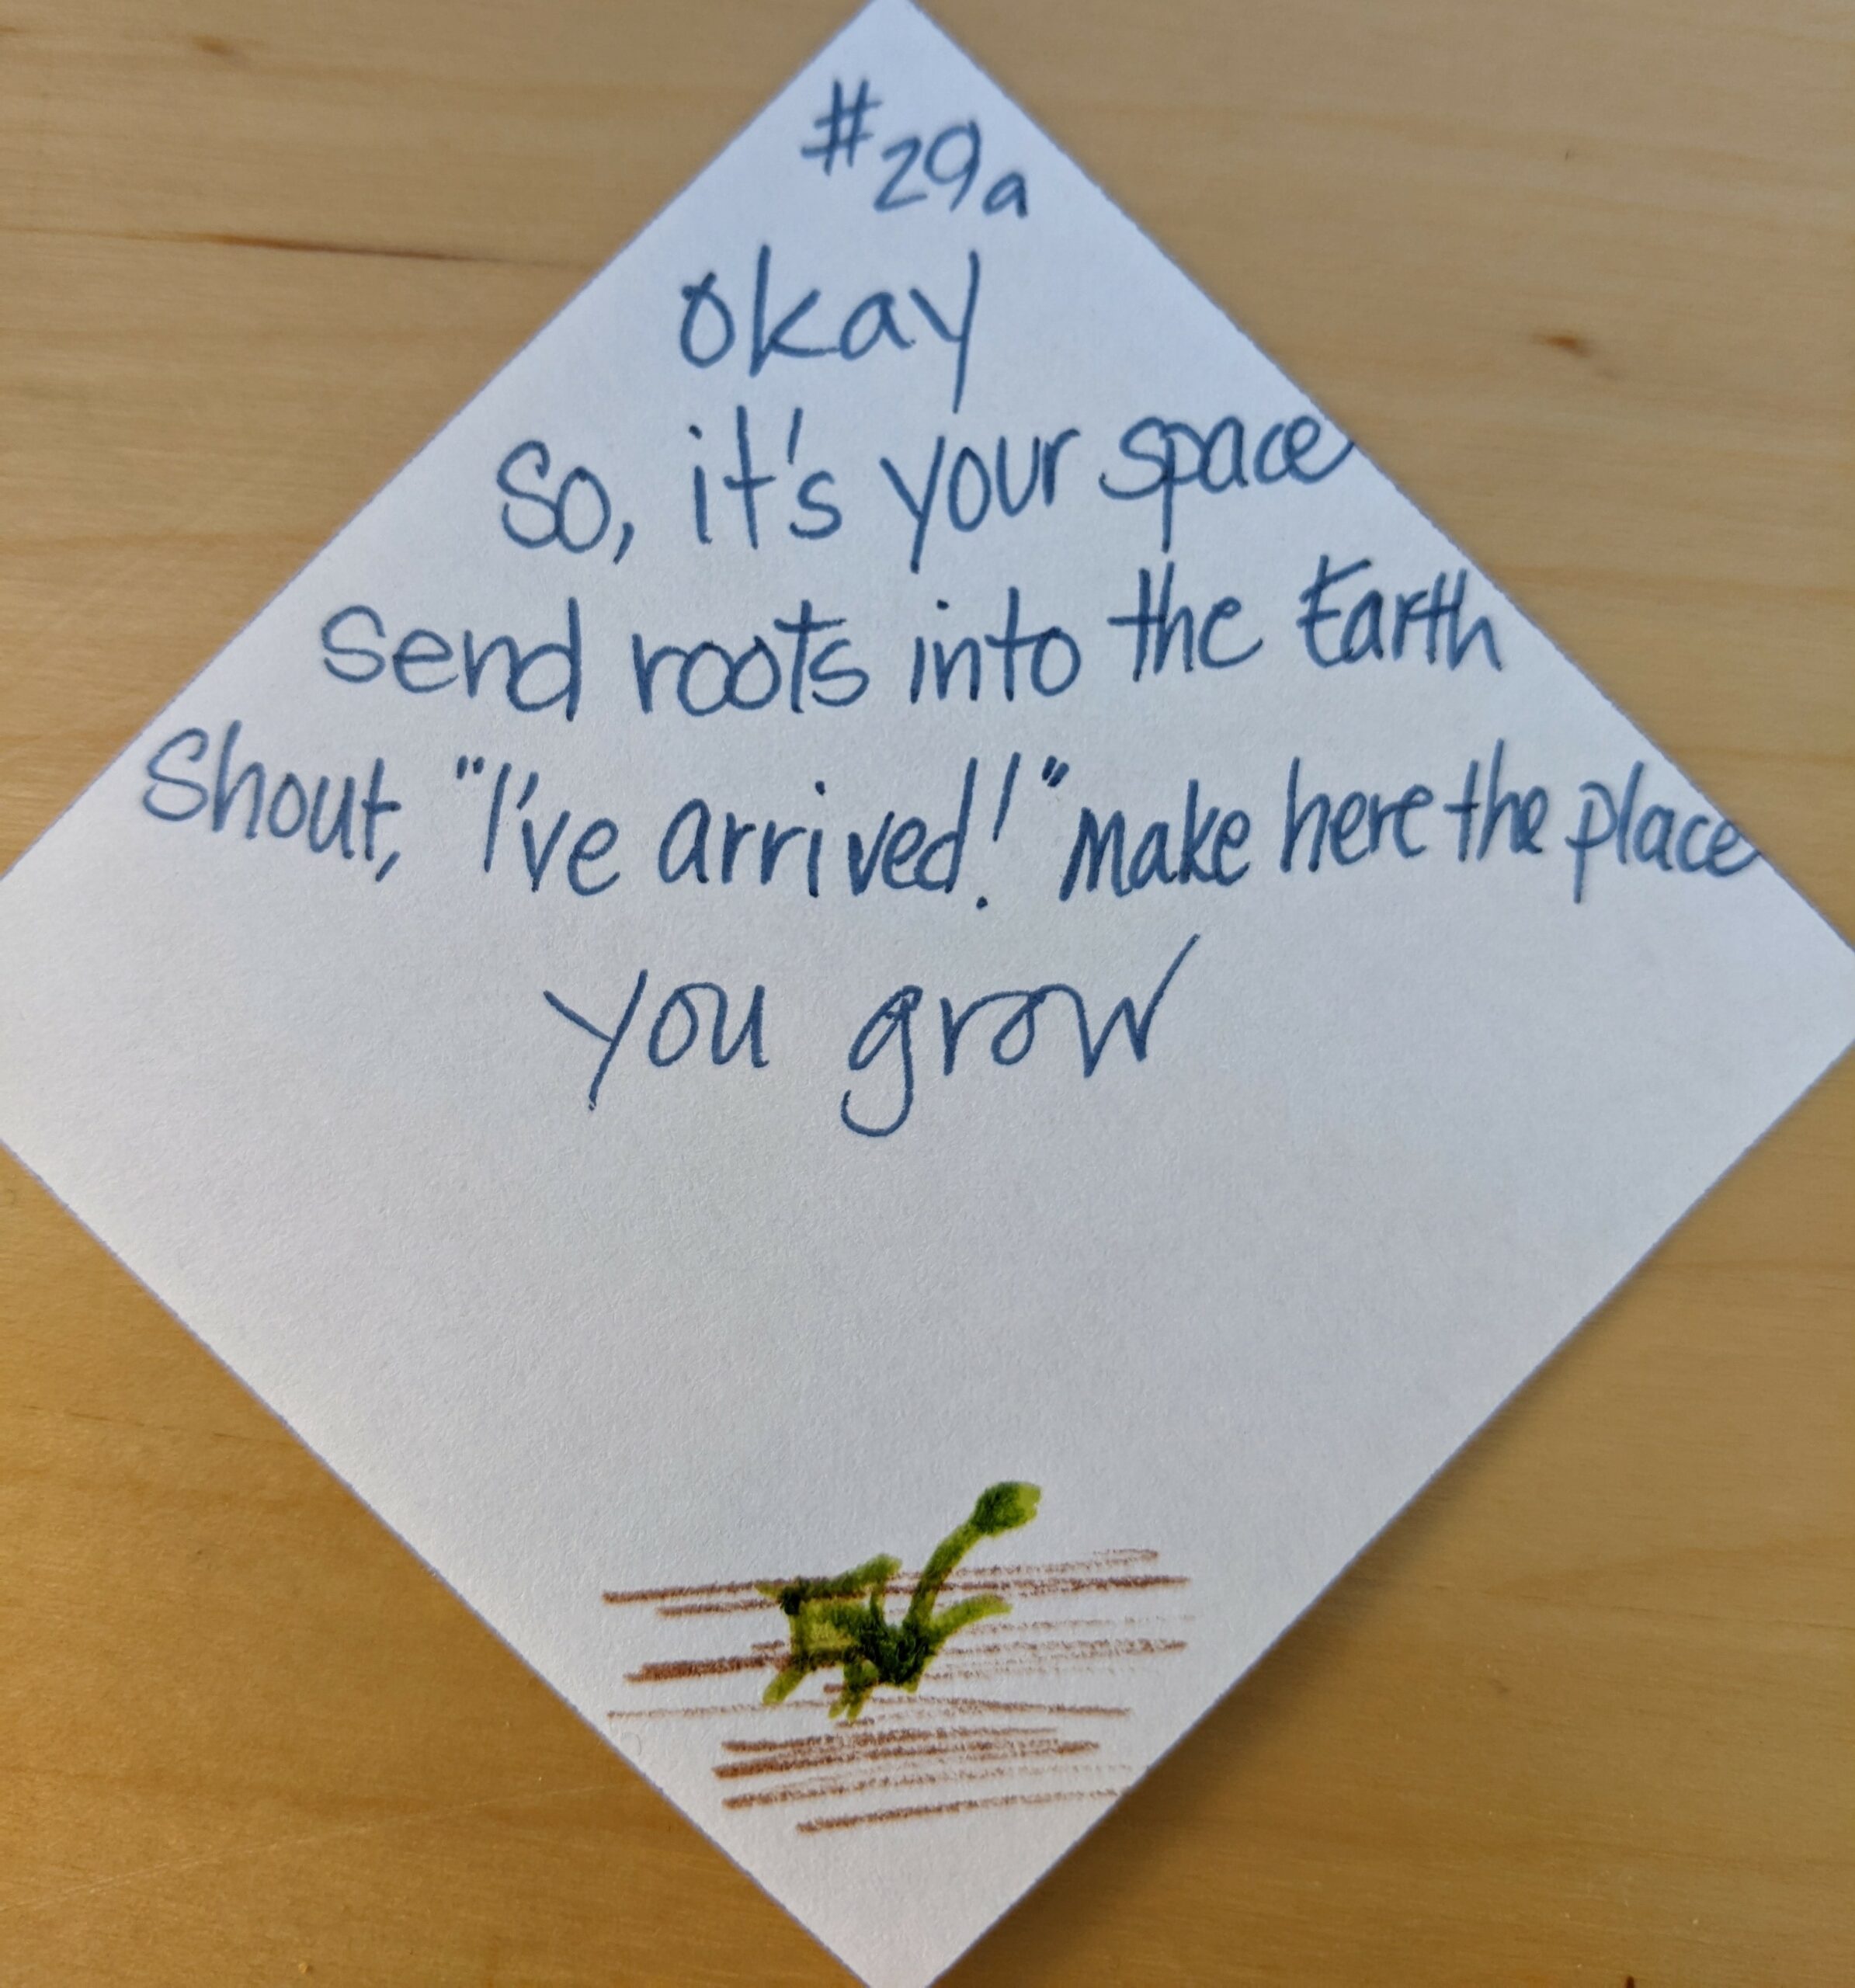 #29a
okay
So, it's your space
send roots into the Earth
Shout, "I've arrived!" make here the place
you grow